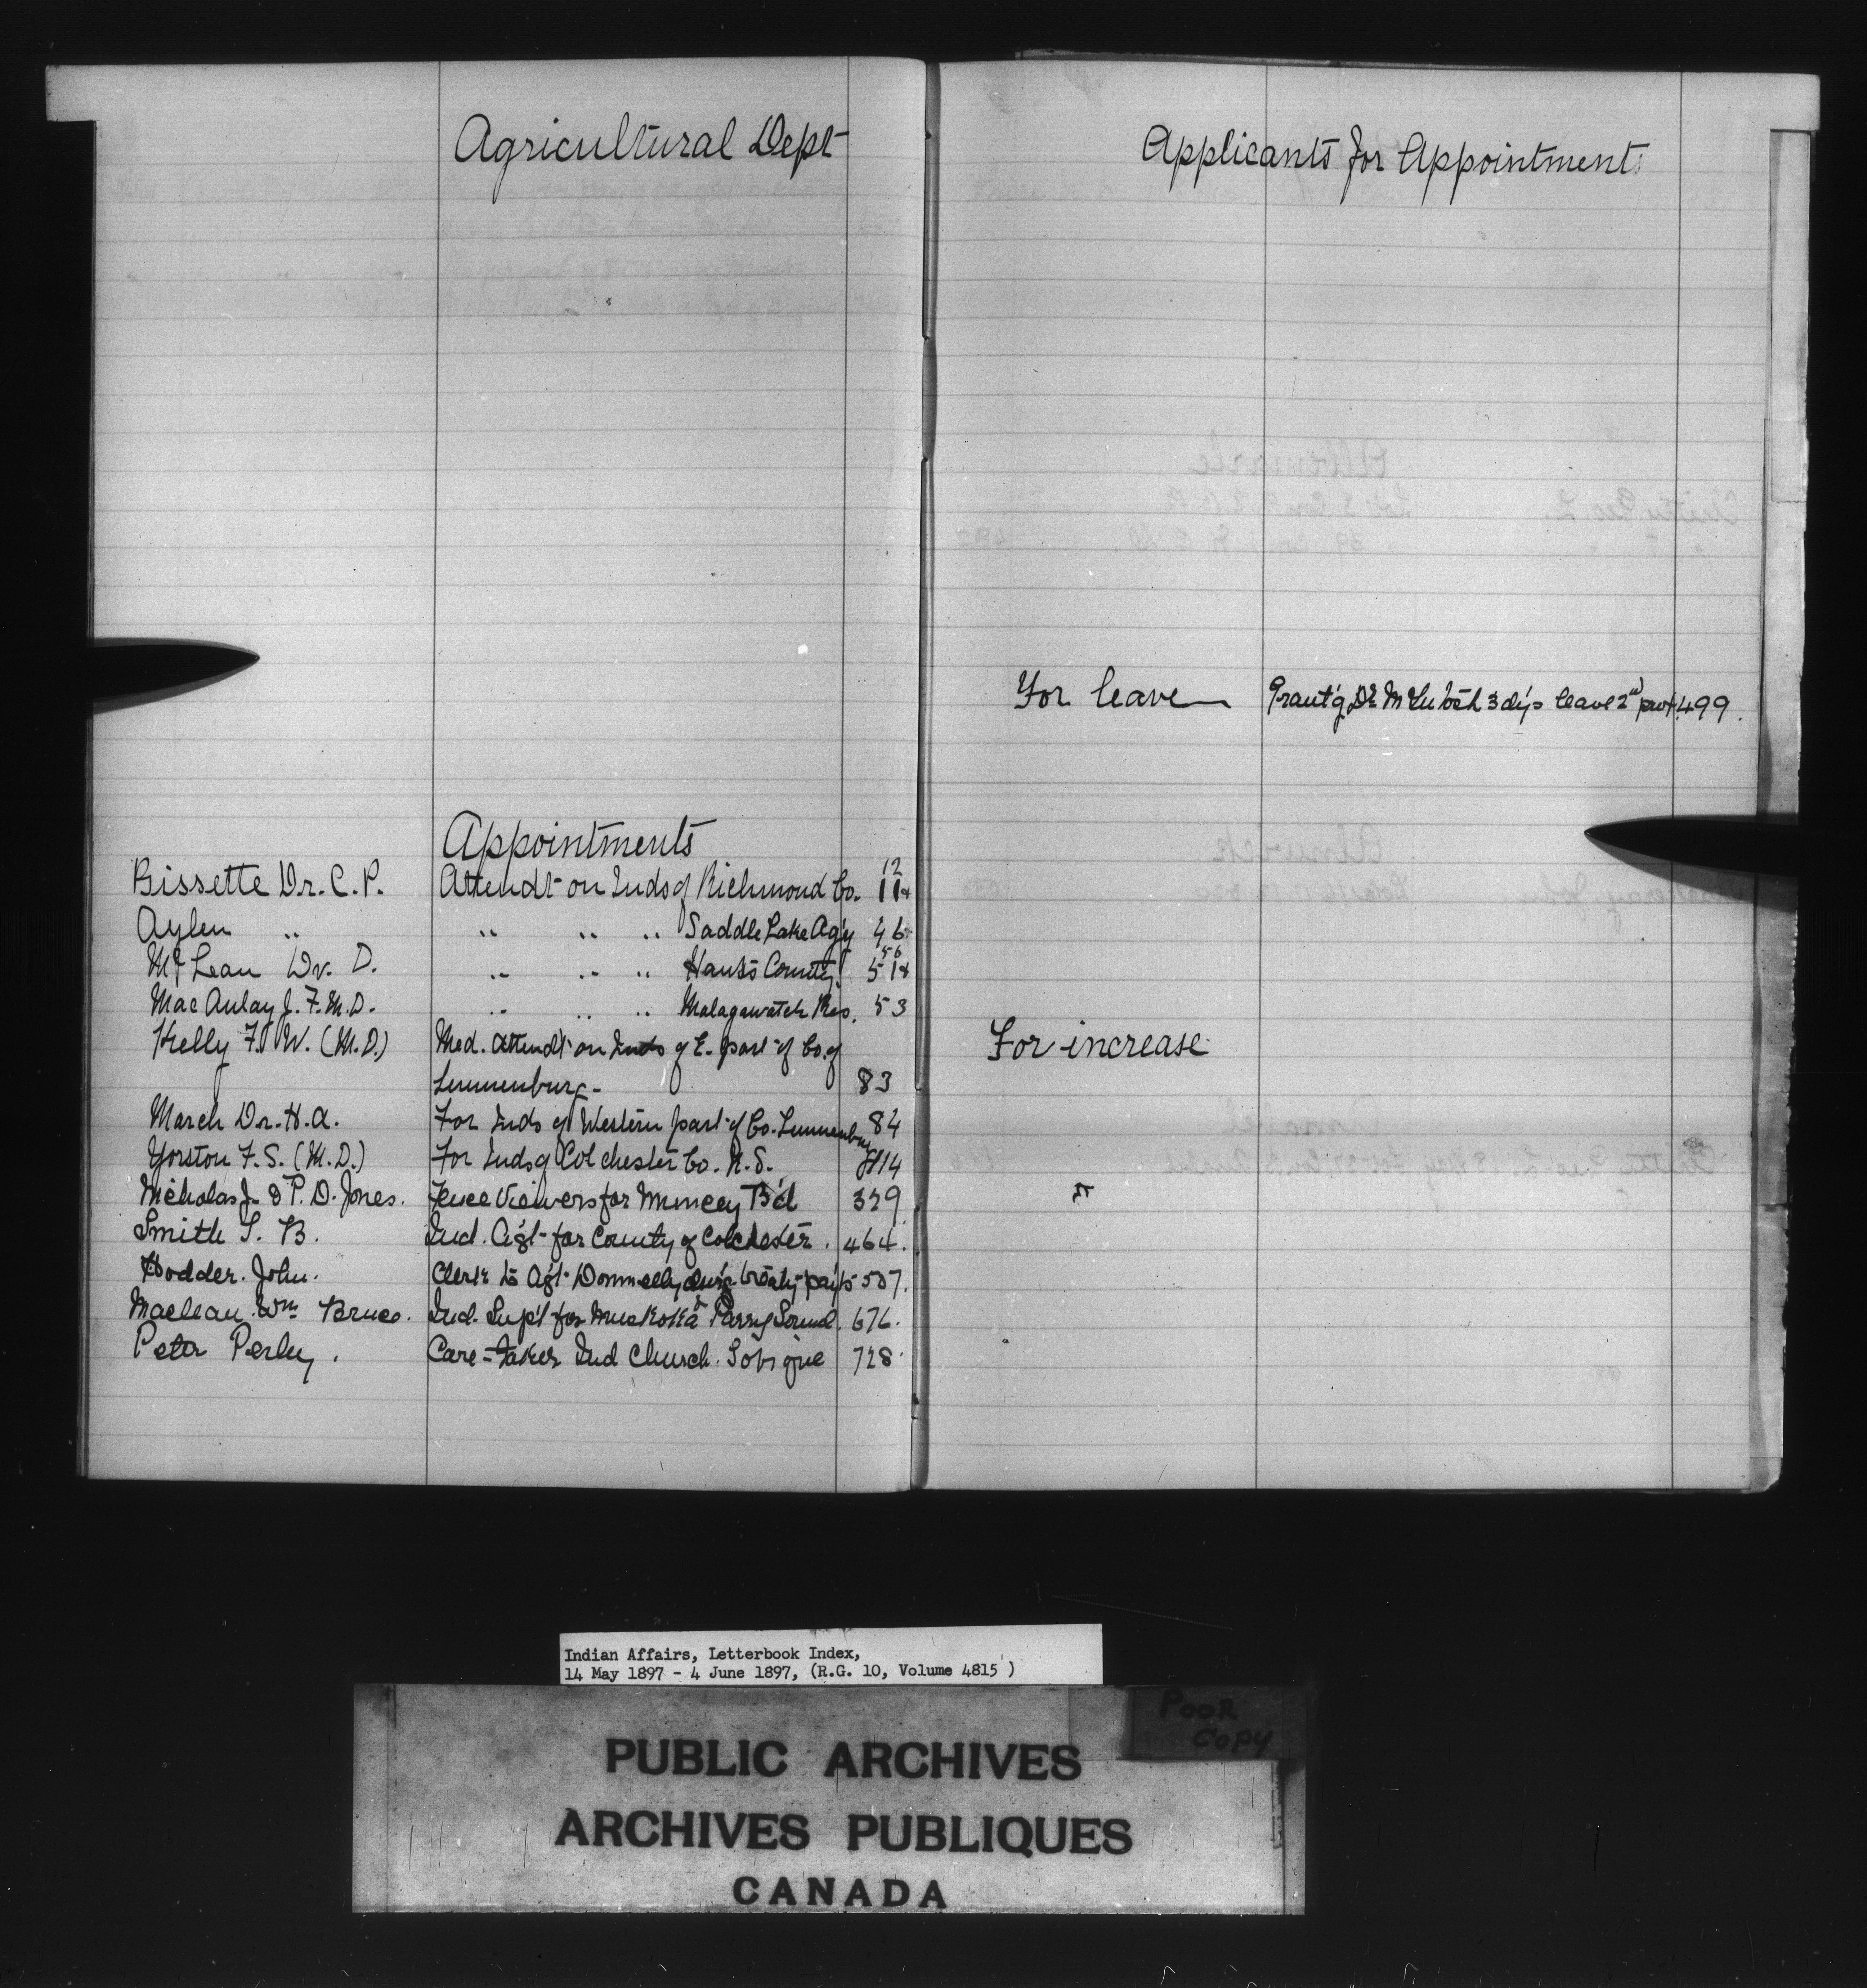 Agricultural Dept
Appointments
Bissette Dr. C. P. Attendt on Inds of Richmond Co. 11 12
Aylen " " " " Saddle Lake Agy 46
McLean Dr. D. " " " Hants County 51 56
MacAulay J. F. M.D. " " " Malagawatch Res. 53
Kelly F. W. (M.D.) Med. Attendt on Inds of E. part of Co. of
Lunnenburg - 83
March Dr. H. A. For Inds of Western part of Co. Lunnenburg 84
Yorston F. S. (M.D.) For Inds of Colchester Co. N.S. 114
Nicholas J. & P. D. Jones. Fence Viewers for Muncey Bd 329
Smith S. B. Ind. Agt for County of Colchester. 464.
Hodder. John. Clerk to Agt Donnelly durg treaty payts 507.
Maclean Wm Bruce. Ind. Supt for Muskoka & Parry Sound. 676.
Peter Perley. Care-taker Ind Church. Tobique 728
Applicants for Appointment
For leave Grant'g Dr McIntosh 3 dys leave 499.
For increase
Indian Affairs, Letterbook Index,
14 May 1897 - 4 June 1897, (R.G. 10, Volume 4815 )
POOR
COPY
PUBLIC ARCHIVES
ARCHIVES PUBLIQUES
CANADA